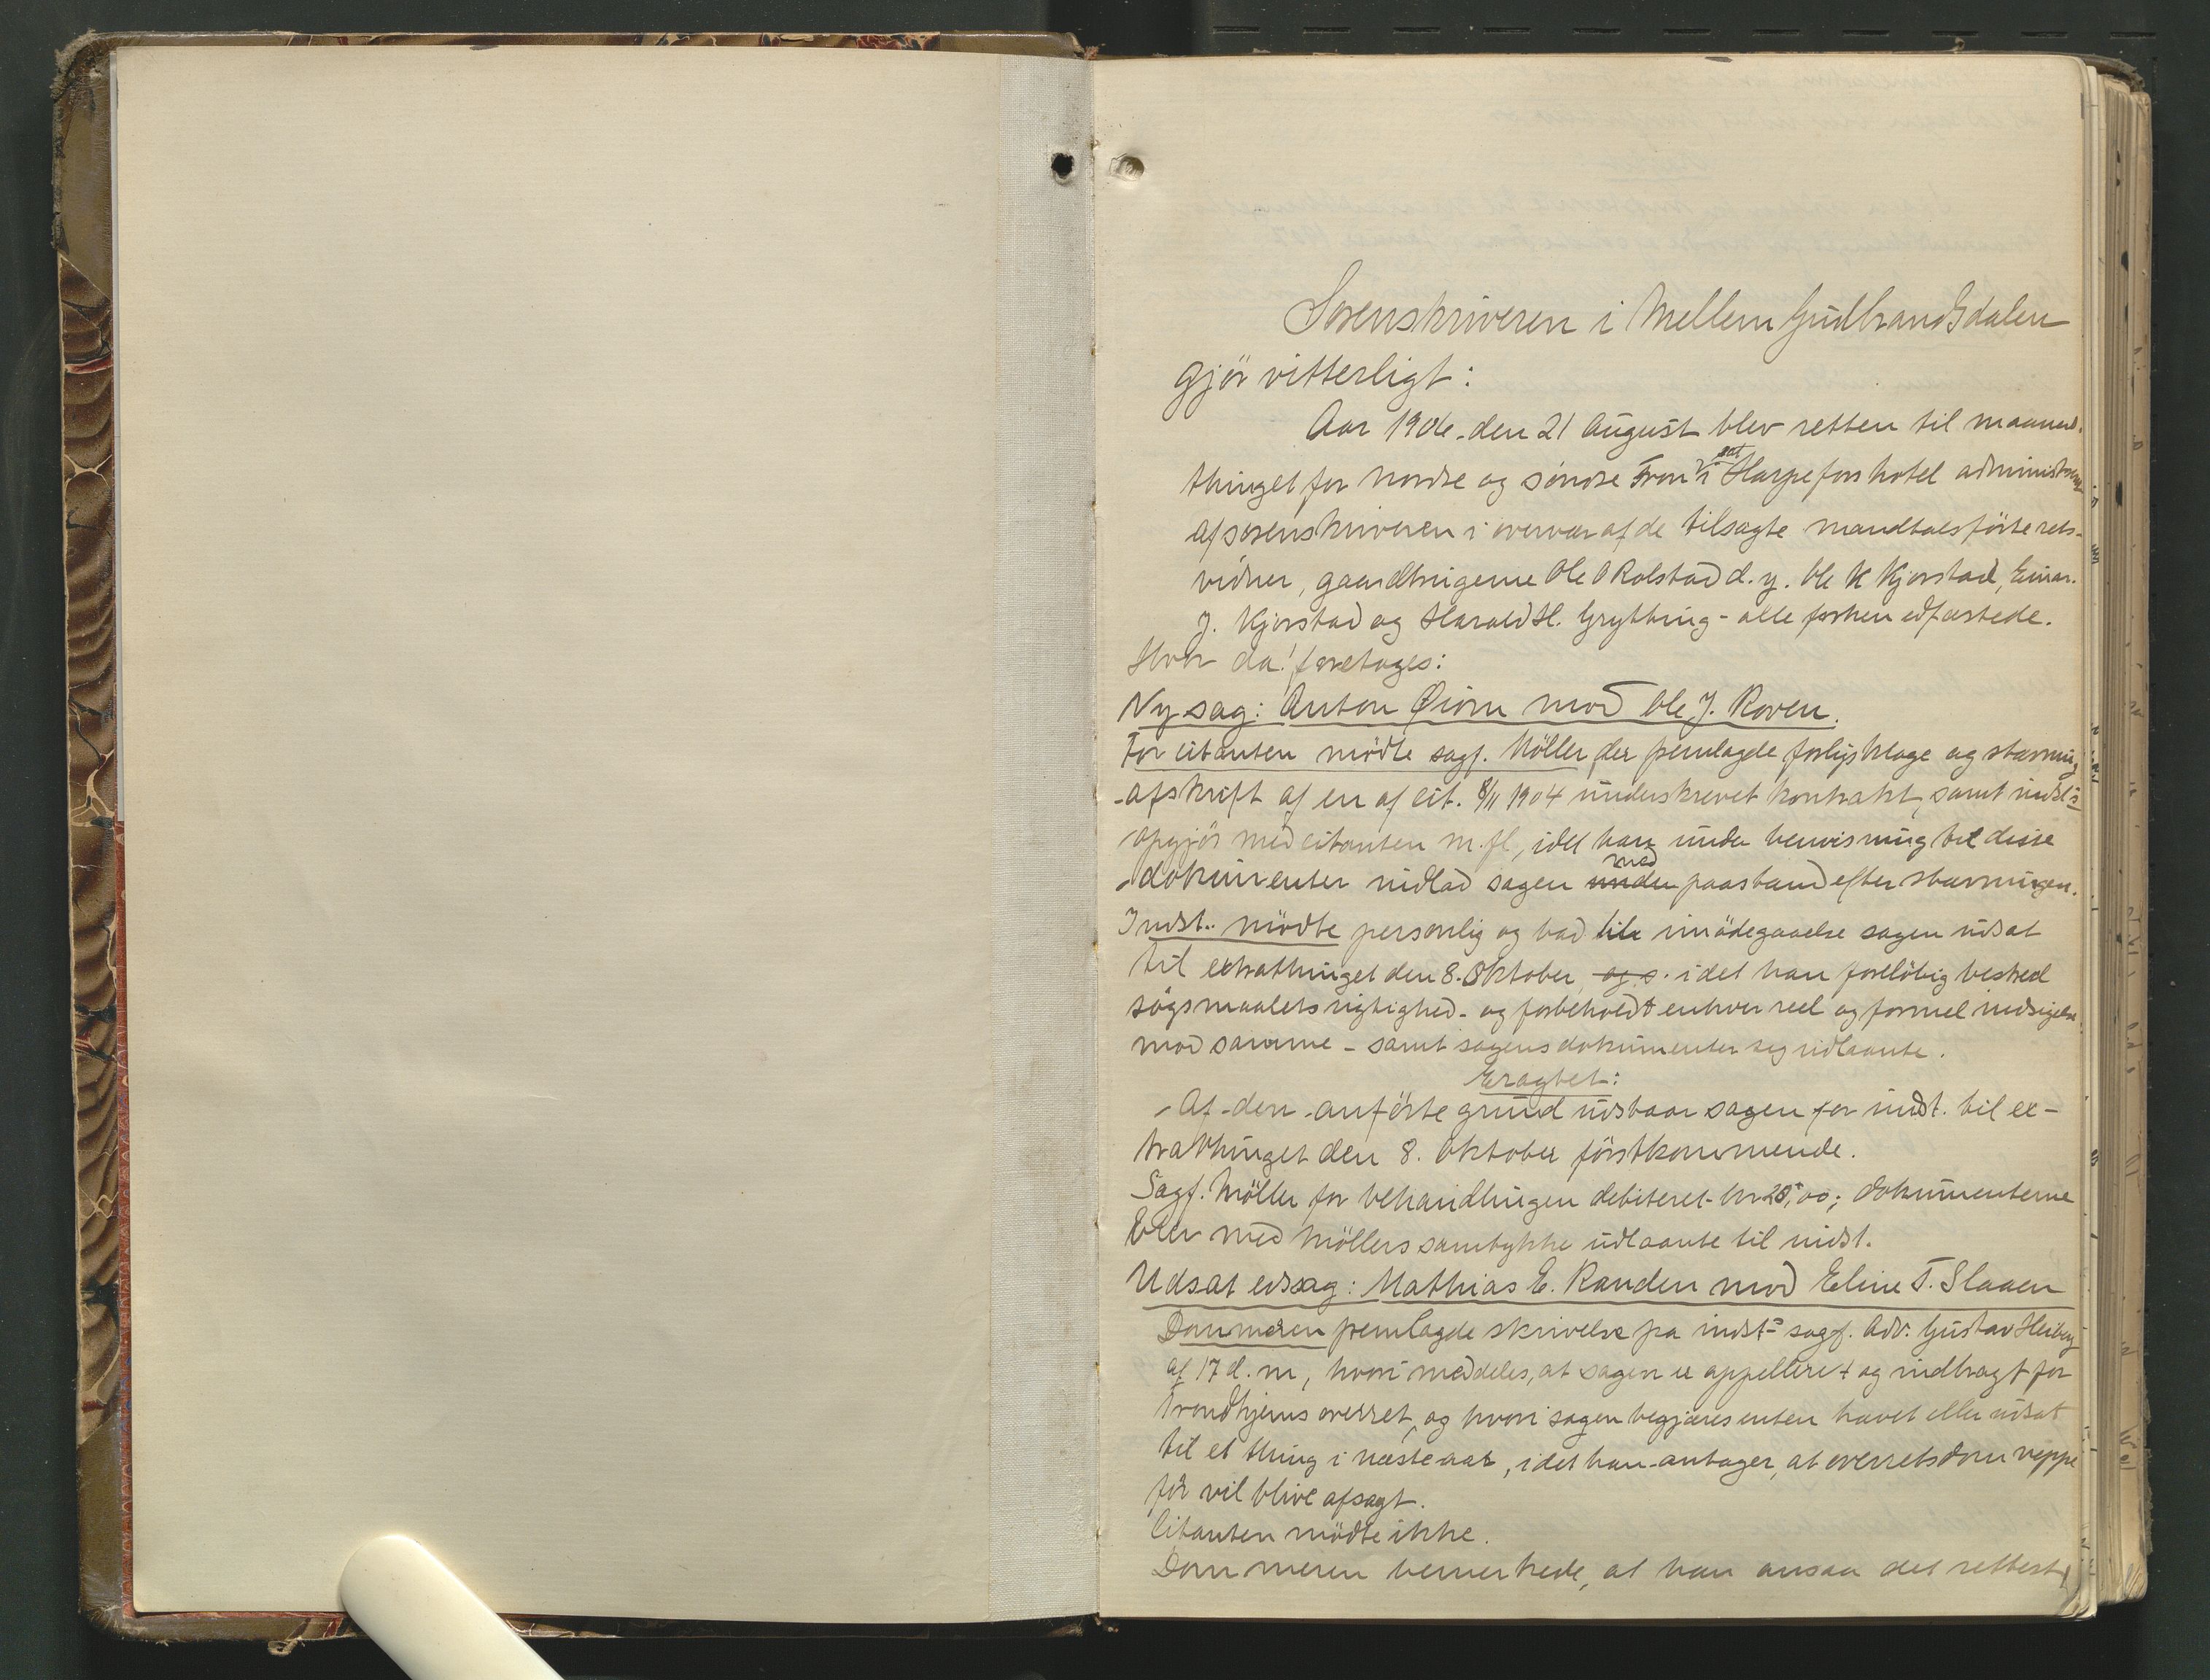 Sorenskriveren i Mellem Gudbrandsdalen
gjör vitterligt:
Aar 1906 den 21 August blev retten til maaneds-
thinget for nordre og söndre Fron sat i Harpefos hotel administreret
af sorenskriveren i overvær af de tilsagte mandtalsförte rets-
vidner, gaardbrugerne Ole O Rolstad d.y. Ole K Kjorstad, Einar
J. Kjorstad og Harald H. Grytting - alle forhen edfæstede.
Hvor da! foretages:
Ny sag: Anton Öiom mod Ole J. Roven.
For citanten mödte sagf. Möller der fremlagde forligsklage og stævning
- afskrift af en af cit. 8/11 1904 underskrevet kontrakt, samt indst s
opgjör med citanten m.fl, idet han under henvisning til disse
dokumenter indlod sagen under med paastand efter stævningen.
Indst. mödte personlig og bad til imödegaaelse sagen udsat
til extrathinget den 8. Oktober, og s. idet han forelöbig bestred
sögsmaalets rigtighed - og forbeholdt enhver reel og formel indsigelse
mod samme - samt sagens dokumenter sig udlaante.
Eragtet:
Af den anförte grund udstaar sagen for indst. til ex-
trathinget den 8. Oktober förstkommende.
Sagf. Möller for behandlingen debiteret kr , 00; dokumenterne
blev med Möllers samtykke udlaante til indst.
Udsat edsag: Mathias E. Randen mod Eline T. Slaaen
Dommeren fremlagde skrivelse fra indst s sagf. Adv. Gustav Heiberg
af 17 d.m, hvori meddeles, at sagen er appelleret og indbragt for
Trondhjems overret, og hvori sagen begjæres enten hævet eller udsat
til et thing i næste aar, idet han antager, at overretsdom neppe
för vil blive afsagt.
Citanten mödte ikke.
Dommeren bemerkede, at han ansaa det rettest